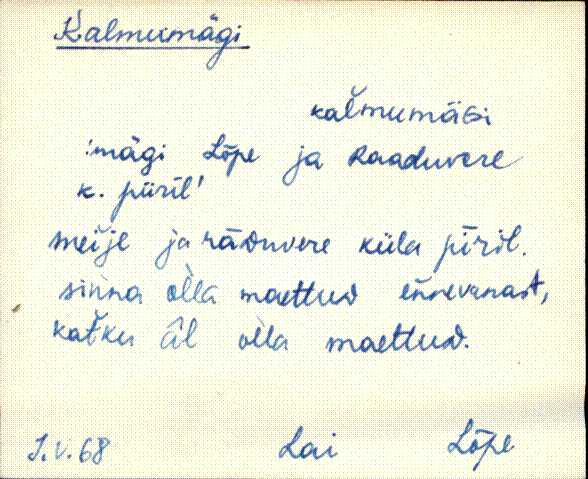 Kalmumägi
kal̆mumäGi
'mägi Lõpe ja Raaduvere
k. piiril'
meĭje ja rāDuvere küla pīril.
sinna olla maettuD eńnevanast,
kat̆ku āl olla maettuD.
I.V.68 Lai Lõpe